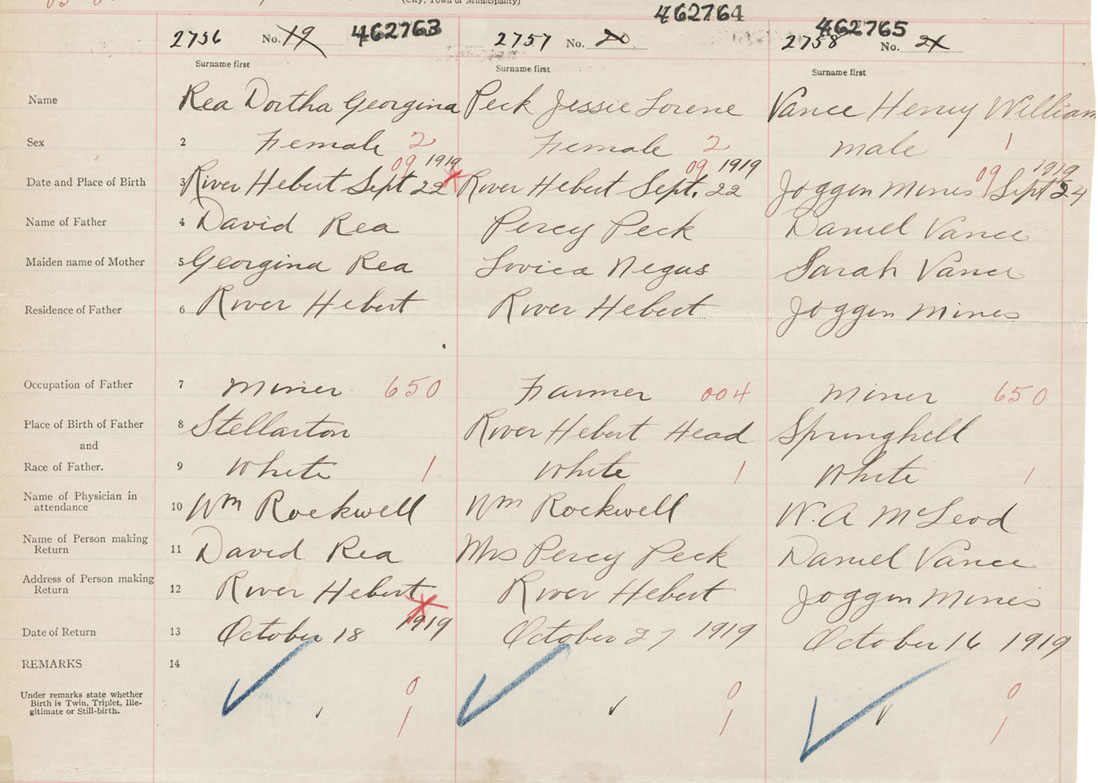 (City, Town or Municipality)
2756 No. 19 462763 2757 No. 20 462764 2758 No. 21 462765
Surname first Surname first Surname first
Name Rea Dortha Georgina Peck Jessie Lorene Vance Henry William
Sex 2 Female 2 Female 2 male 1
09 1919 09 1919 09 1919
Date and Place of Birth 3 River Hebert Sept 22 River Hebert Sept. 22 Joggin Mines Sept 24
Name of Father 4 David Rea Percy Peck Daniel Vance
Maiden name of Mother 5 Georgina Rea Lovica Negus Sarah Vance
Residence of Father 6 River Hebert River Hebert Joggin Mines
Occupation of Father 7 Miner 650 Farmer 004 miner 650
Place of Birth of Father 8 Stellarton River Hebert Head Springhell
and
Race of Father. 9 White 1 White 1 White 1
Name of Physician in
attendance 10 Wm Rockwell Wm Rockwell W. A McLeod
Name of Person making
Return 11 David Rea Mrs Percy Peck Daniel Vance
Address of Person making
Return 12 River Hebert River Hebert Joggin Mines
Date of Return 13 October 18 1919 October 27 1919 October 16 1919
REMARKS 14
Under remarks state whether
Birth is Twin, Triplet, Ille-
gitimate or Still-birth.
0 0 0
1 1 1